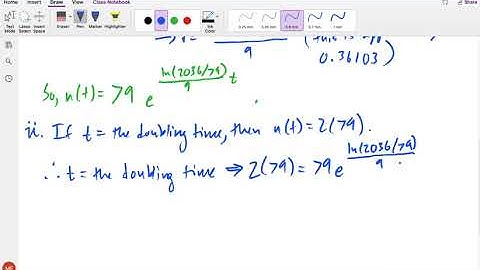 Home Insert Draw View Class Notebook
Type
Lasso Select
Insert Space
Pen
Marker
Highlighter
Eraser
0.25 mm
0.35 mm
0.5 mm
0.7 mm
1 mm
(this is
9 0.36103)
So, n(t) = 79 e^{ln(2036/79)/9 t}
ii. If t = the doubling time, then n(t) = 2(79).
∴ t = the doubling time ⇒ 2(79) = 79 e^{ln(2036/79)/9 .